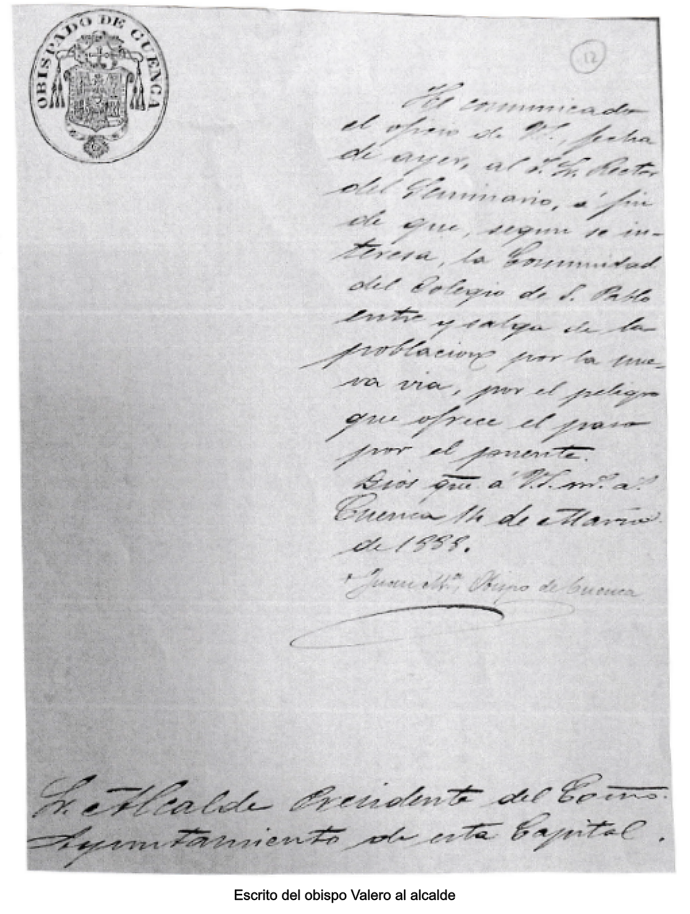 OBISPADO DE CUENCA
12
He comunicado
el oficio de V.S., fecha
de ayer, al S. Sr. Rector
del Seminario, á fin
de que, segun se in-
teresa, la Comunidad
del Colegio de S. Pablo
entre y salga de la
poblacion por la nue-
va via, por el peligro
que ofrece el paso
por el puente.
Dios gue á V.S. ms. as.
Cuenca 14 de Marzo
de 1888.
+ Juan Mª, Obispo de Cuenca
Sr. Alcalde Presidente del Excmo.
Ayuntamiento de esta Capital.
Escrito del obispo Valero al alcalde